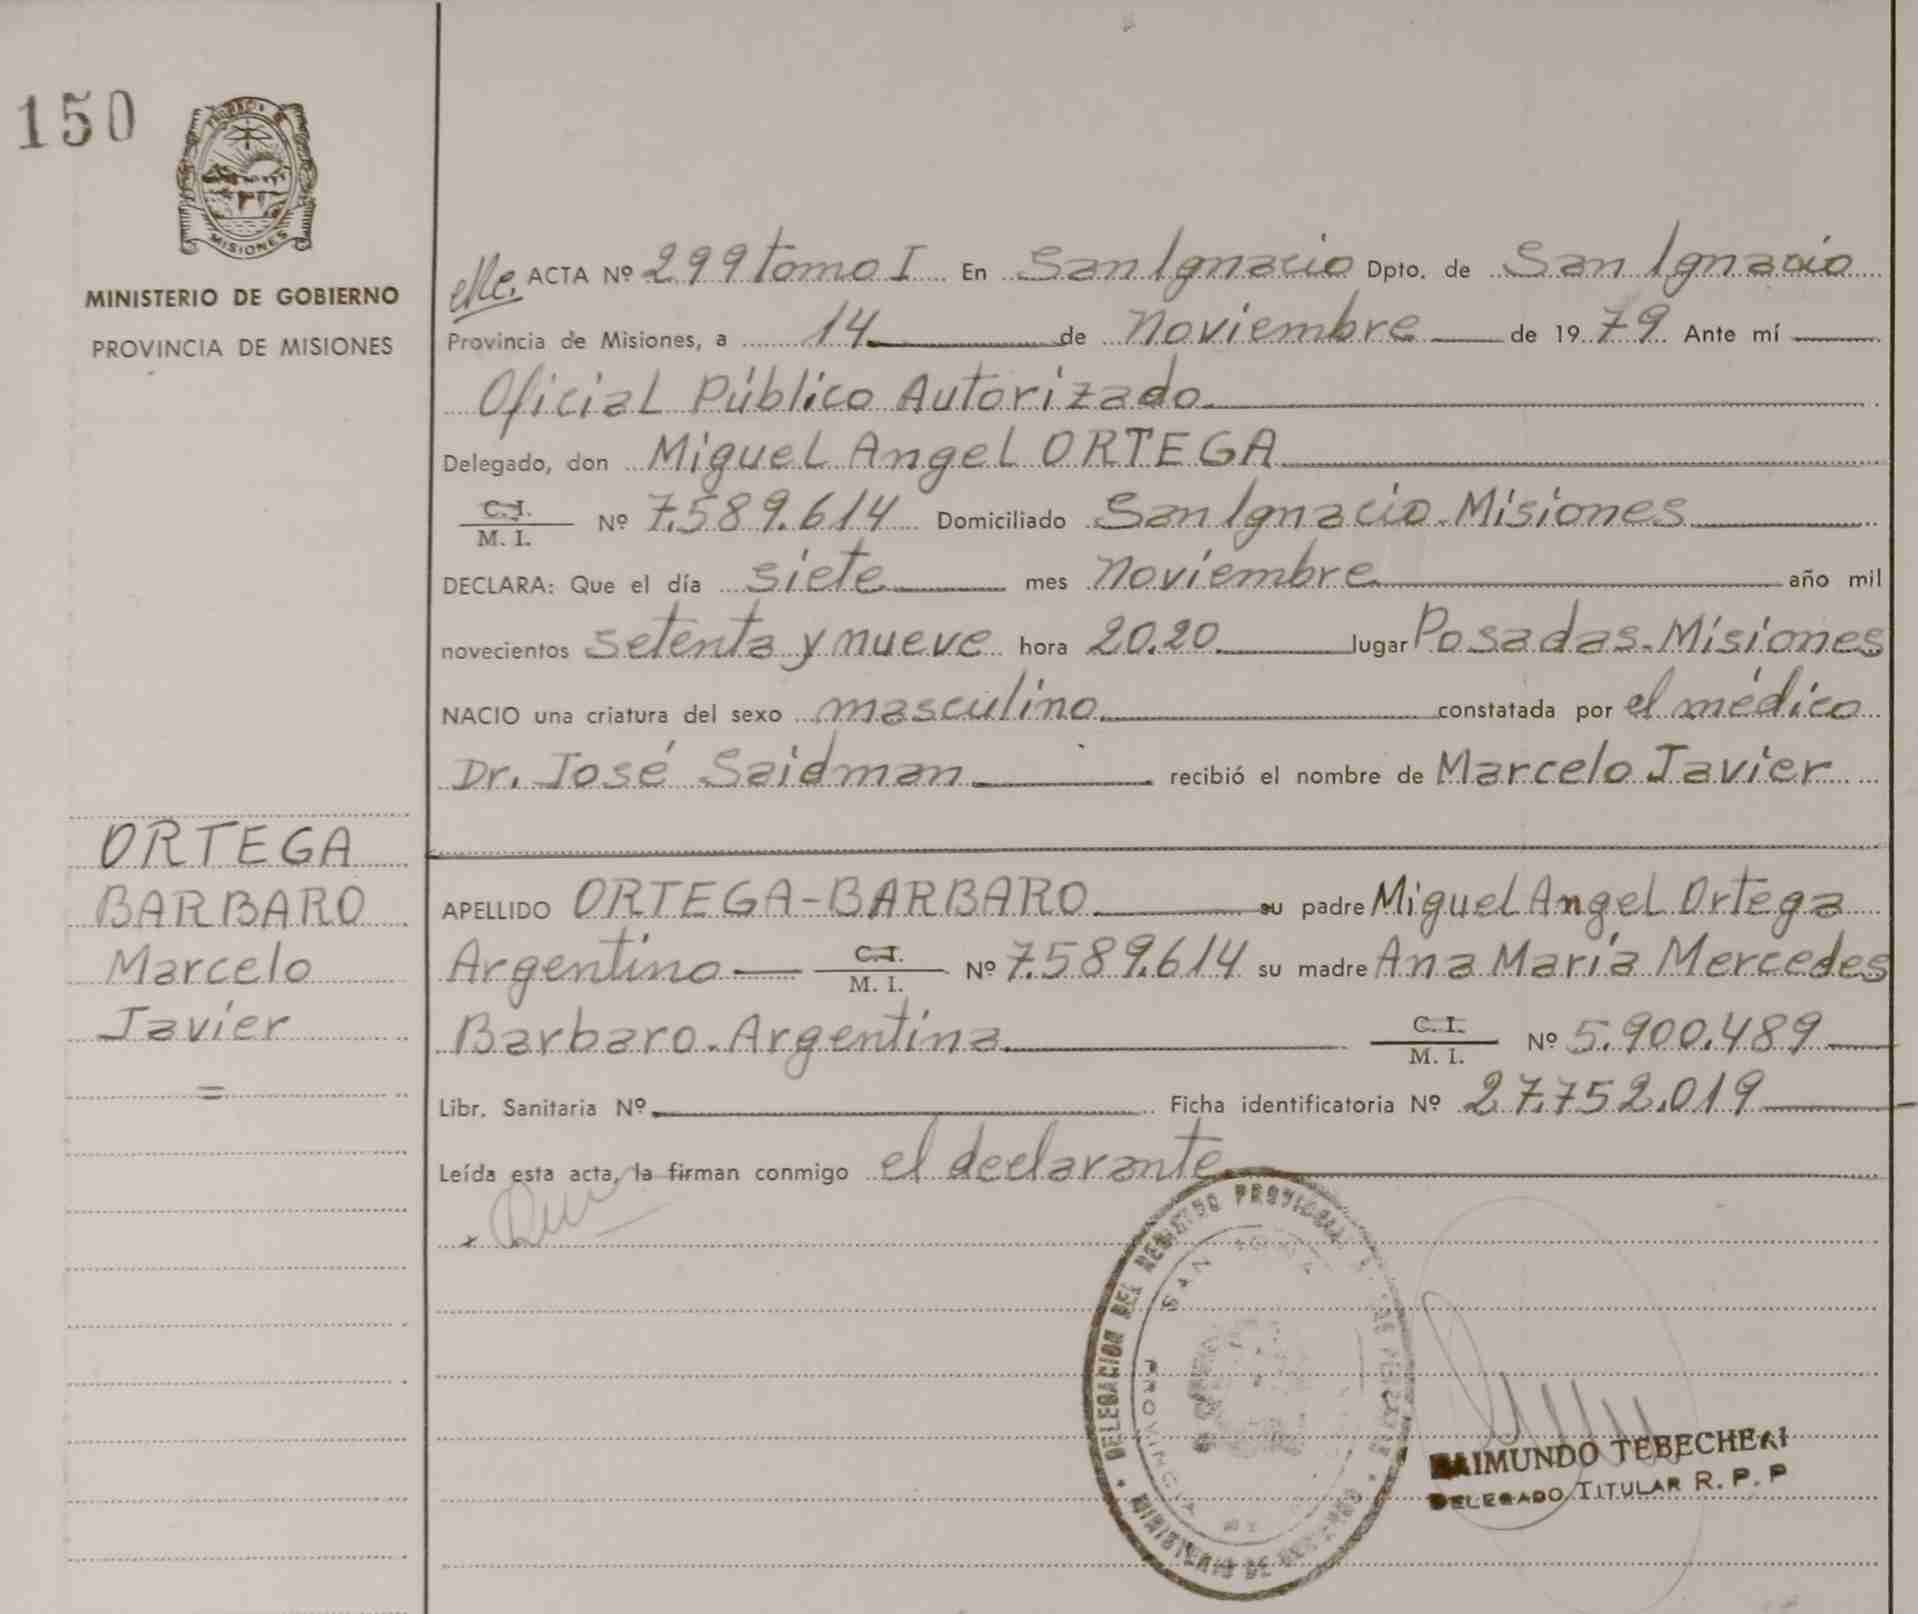 150
MISIONES
MINISTERIO DE GOBIERNO
PROVINCIA DE MISIONES
ORTEGA
BARBARO
Marcelo
Javier
=
ACTA Nº 299 tomo I En San Ignacio Dpto. de San Ignacio
Provincia de Misiones, a 14 de Noviembre de 1979. Ante mí
Oficial Público Autorizado
Delegado, don Miguel Angel ORTEGA
C.I.
M. I. Nº 7.589.614 Domiciliado San Ignacio. Misiones
DECLARA: Que el día siete mes Noviembre año mil
novecientos setenta y nueve hora 20.20 lugar Posadas-Misiones
NACIO una criatura del sexo masculino constatada por el médico
Dr. José Saidman recibió el nombre de Marcelo Javier
APELLIDO ORTEGA-BARBARO su padre Miguel Angel Ortega
Argentino C.I.
M. I. Nº 7.589.614 su madre Ana María Mercedes
Barbaro. Argentina C. I.
M. I. Nº 5.900.489
Libr. Sanitaria Nº Ficha identificatoria Nº 27.752.019
Leída esta acta, la firman conmigo el declarante
DELEGACION DEL REGISTRO PROVINCIAL
SAN
PROVINCIA
RAIMUNDO TEBECHERI
DELEGADO TITULAR R. P. P